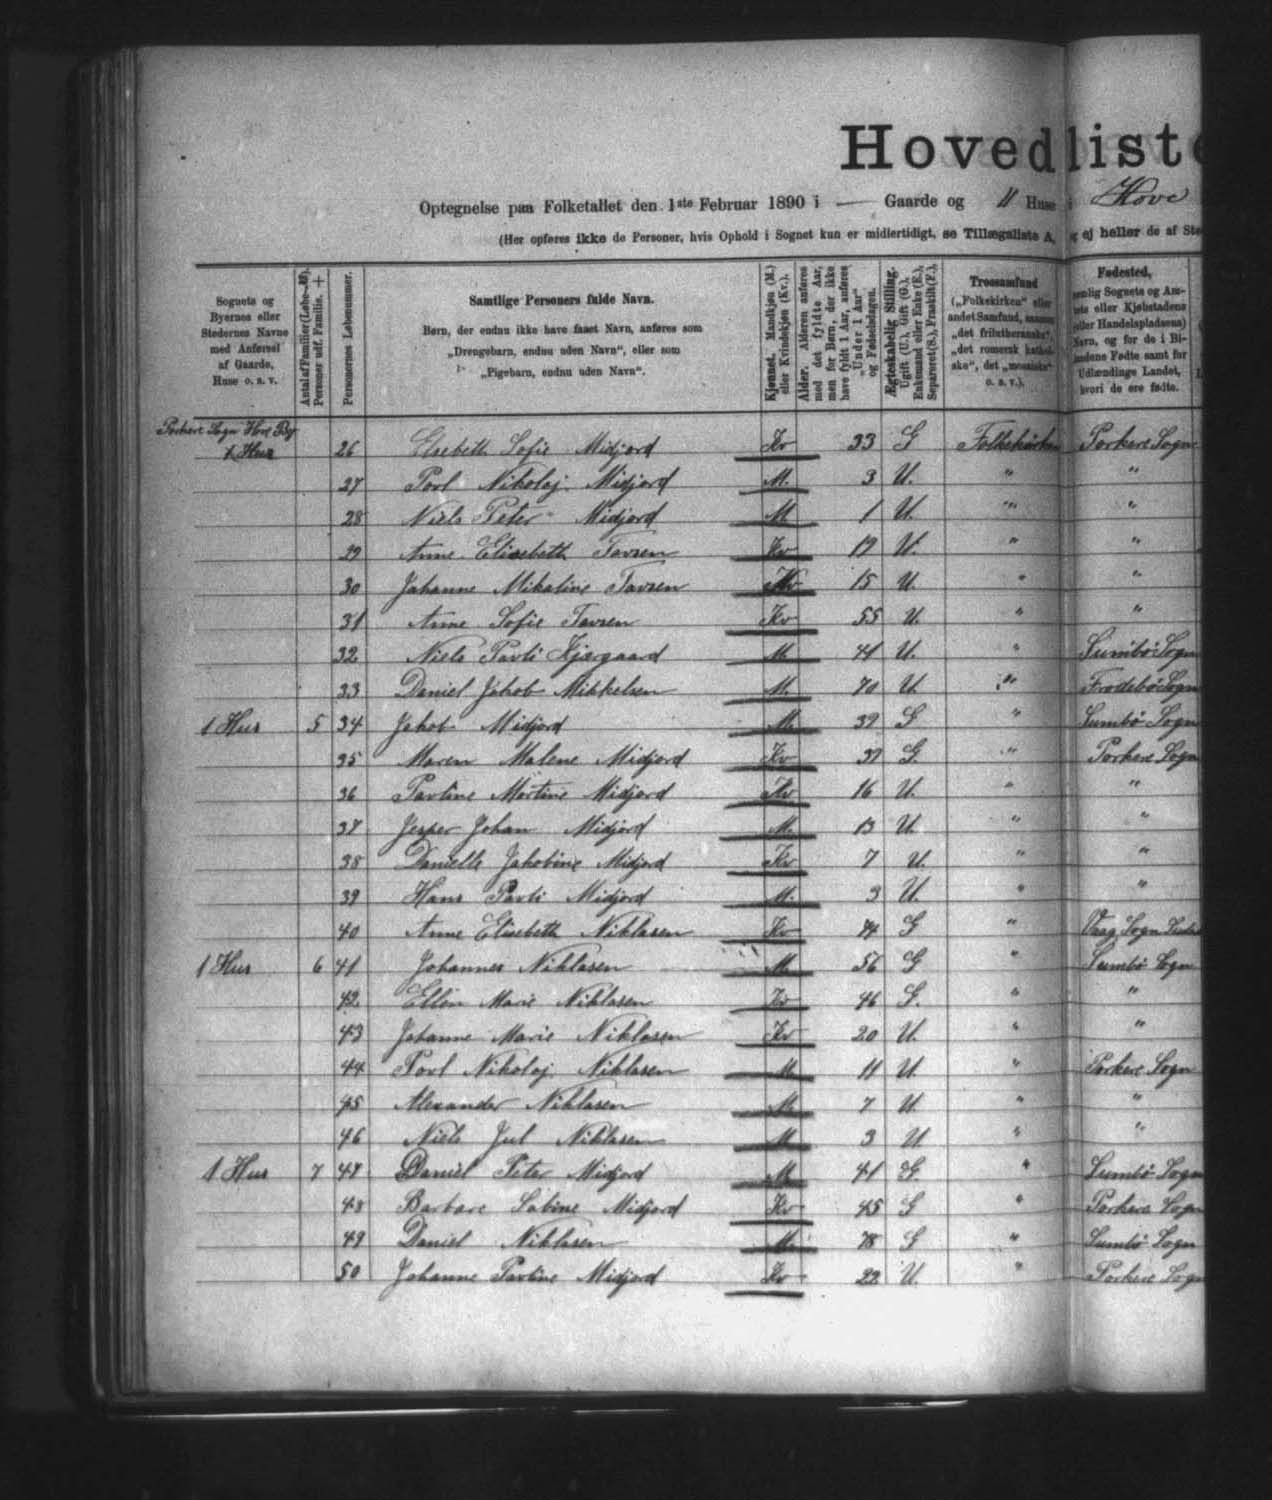 Hovedliste
Optegnelse paa Folketallet den 1ste Februar 1890 i — Gaarde og 11 Huse i Hove
(Her opføres ikke de Personer, hvis Ophold i Sognet kun er midlertidigt, se Tillægsliste A, og ej heller de af Ste
Sognets og Byernes eller Stedernes Navne med Anførsel af Gaarde, Huse o. s. v.
Antal af Familier (Løbe-№). Personer udf. Familie. +
Personernes Løbenummer.
Samtlige Personers fulde Navn.
Børn, der endnu ikke have faaet Navn, anføres som
„Drengebarn, endnu uden Navn“, eller som
„Pigebarn, endnu uden Navn“.
Kjønnet. Mandkjøn (M.) eller Kvindekjøn (Kv.).
Alder. Alderen anføres med det fyldte Aar, men for Børn, der ikke have fyldt 1 Aar, anføres „Under 1 Aar“ og Fødselsdagen.
Ægteskabelig Stilling. Ugift (U.), Gift (G.), Enkemand eller Enke (E.), Separeret (S.), Fraskilt (F.).
Trossamfund („Folkekirken“ eller andet Samfund, saasom „det frilutheranske“, „det romersk katholske“, det „mosaiske“ o. s. v.).
Fødested, nemlig Sognets og Amtets eller Kjøbstadens (eller Handelspladsens) Navn, og for de i Bilandene Fødte samt for Udlændinge Landet, hvori de ere fødte.
Porkere Sogn Hove By
1 Hus 26 Elsebeth Sofie Midjord Kv 33 G Folkekirken Porkere Sogn
27 Povl Nikolaj Midjord M. 3 U. " "
28 Niels Peter Midjord M 1 U. " "
29 Anne Elisebeth Tavsen Kv 19 U. " "
30 Johanne Mikaline Tavsen Kv 15 U. " "
31 Anne Sofie Tavsen Kv 55 U. " "
32 Niels Pavli Kjærgaard M 41 U. " Sumbø Sogn
33 Daniel Jakob Mikkelsen M. 70 U " Frodebø Sogn
1 Hus 5 34 Jakob Midjord M. 39 G " Sumbø Sogn
35 Maren Malene Midjord Kv 37 G. " Porkere Sogn
36 Pavline Mortine Midjord Kv 16 U. " "
37 Jesper Johan Midjord M. 13 U " "
38 Danielle Jakobine Midjord Kv 7 U. " "
39 Hans Pavli Midjord M. 3 U. " "
40 Anne Elisebeth Niklasen Kv 74 G " Vaag Sogn
1 Hus 6 41 Johannes Niklasen M 56 G " Sumbø Sogn
42 Ellen Marie Niklasen Kv 46 G. " "
43 Johanne Marie Niklasen Kv 20 U. " "
44 Povl Nikolaj Niklasen M 11 U. " Porkere Sogn
45 Alexander Niklasen M 7 U. " "
46 Niels Jul Niklasen M 3 U " "
1 Hus 7 47 Daniel Peter Midjord M 41 G. " Sumbø Sogn
48 Barbare Sabine Midjord Kv 45 G " Porkere Sogn
49 Daniel Niklasen M. 78 G " Sumbø Sogn
50 Johanne Pavline Midjord Kv 22 U. " Porkere Sogn